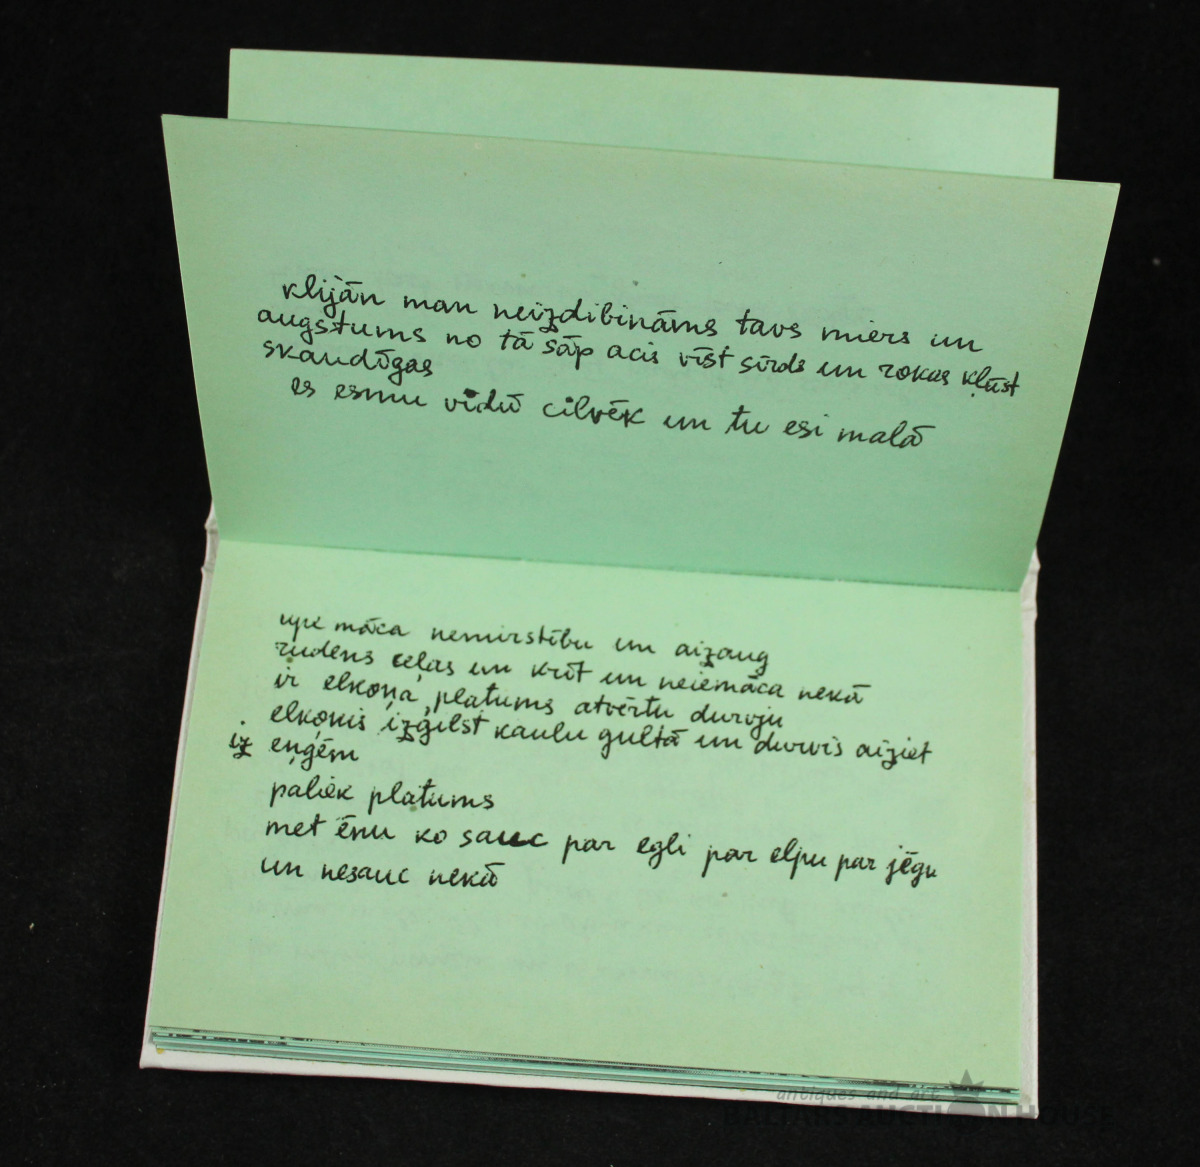 klijān man neizdibināms tavs miers un
augstums no tā sāp acis vīst sirds un rokas kļūst
skaudīgas
es esmu vidū cilvēk un tu esi malā
upe māca nemirstību un aizaug
rudens ceļas un krīt un neiemāca nekā
ir elkoņa platums atvērtu durvju
elkonis izģilst kaulu gultā un durvis aiziet
iz eņģēm
paliek platums
met ēnu ko sauc par egli par elpu par jēgu
un nesauc nekā
antiques and art
BALTARS AUCTION HOUSE